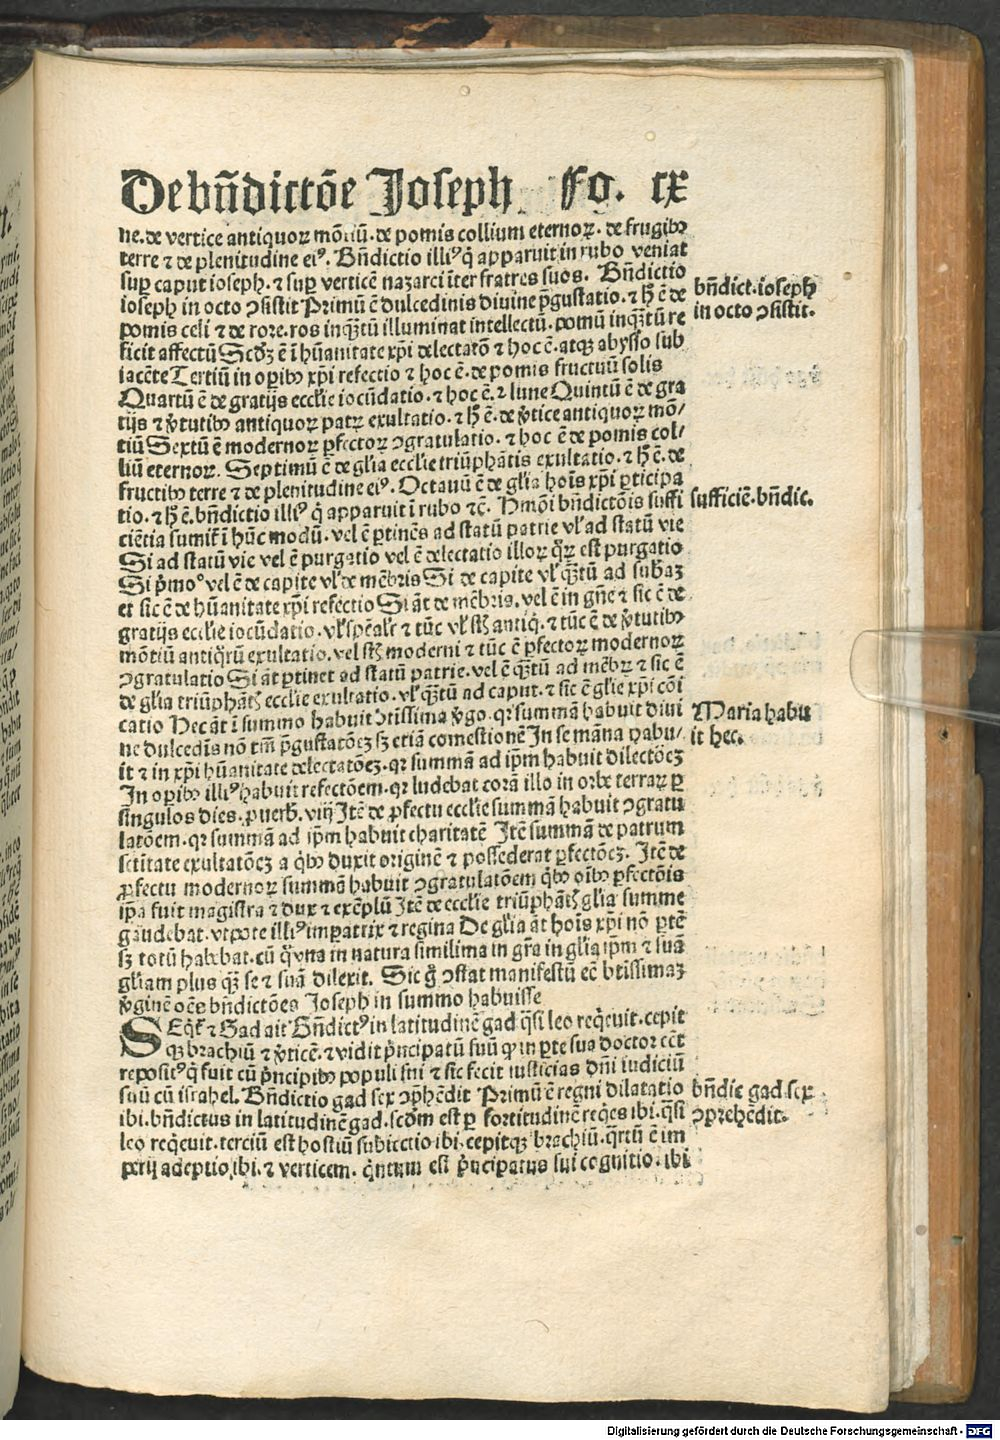 De bñdictõe Joseph Fo. cx
ne. de vertice antiquoꝝ mõtiũ. de pomis collium eternoꝝ. de frugibꝰ
terre ⁊ de plenitudine eiꝰ. Bñdictio illiꝰ q̃ apparuit in rubo veniat
suꝑ caput ioseph. ⁊ suꝑ verticẽ nazarei ĩter fratres suos. Bñdictio
ioseph in octo ꝯsistit Primũ ẽ dulcedinis divine p̃gustatio. ⁊ h̃ ẽ de
pomis celi ⁊ de rore. ros inq̃ꝫtũ illuminat intellectũ. pomũ inq̃ꝫtũ re
ficit affectũ Scd̃ꝫ ẽ ĩ hũanitate xp̃i delectatõ ⁊ hoc ẽ. atqꝫ abysso sub
iacẽte Tertiũ in oꝑibꝰ xp̃i refectio ⁊ hoc ẽ. de pomis fructuũ solis
Quartũ ẽ de gratijs eccl̃ie iocũdatio. ⁊ hoc ẽ. ⁊ lune Quintũ ẽ de gra
tijs ⁊ v̓tutibꝰ antiquoꝝ patꝝ exultatio. ⁊ h̃ ẽ. de v̓tice antiquoꝝ mõ/
tiũ Sextũ ẽ modernoꝝ ꝑfectoꝝ ꝯgratulatio. ⁊ hoc ẽ de pomis col/
liũ eternoꝝ. Septimũ ẽ de gl̃ia eccl̃ie triũphãtis exultatio. ⁊ h̃ ẽ. de
fructibꝰ terre ⁊ de plenitudine eiꝰ. Octauũ ẽ de gl̃ia hoĩs xp̃i ꝑticipa
tio. ⁊ h̃ ẽ. bñdictio illiꝰ q̃ apparuit ĩ rubo ⁊c̃. Hmõi bñdictõis suffi
ciẽtia sumit̃ ĩ hũc modũ. vel ẽ ꝑtinẽs ad statũ patrie vl̓ ad statũ vie
Si ad statũ vie vel ẽ purgatio vel ẽ delectatio illoꝝ q̃ꝝ est purgatio
Si p̓mo° vel ẽ de capite vl̓ de mẽbris Si de capite vl̓ q̃ꝫtũ ad sub̃aꝫ
et sic ẽ de hũanitate xp̃i refectio Si ãt de mẽbris. vel ẽ in gñe ⁊ sic ẽ de
gratijs eccl̃ie iocũdatio. vl̓ sp̃eal̃r ⁊ tũc vl̓ st̃ antiq̃. ⁊ tũc ẽ de v̓tutibꝰ
mõtiũ antiq̃rũ exultatio. vel st̃ moderni ⁊ tũc ẽ ꝑfectoꝝ modernoꝝ
ꝯgratulatio Si ãt ꝑtinet ad statũ patrie. vel ẽ q̃ꝫtũ ad mẽbꝝ ⁊ sic ẽ
de gl̃ia triũphãt̃ eccl̃ie exultatio. vl̓ q̃ꝫtũ ad caput. ⁊ sic ẽ gl̃ie xp̃i cõi
catio Hec ãt ĩ summo habuit btĩssima v̓go. qꝛ summã habuit diui
ne dulcedĩs nõ tm̃ p̃gustatõeꝫ sꝫ etiã comestionẽ In se mãna habu/
it ⁊ in xp̃i hũanitate delectatõeꝫ. qꝛ summã ad ip̃m habuit dilectõeꝫ
In oꝑibꝰ illiꝰ habuit refectõem. qꝛ ludebat corã illo in orbe terraꝝ ꝑ
singulos dies. puerb̃. viij Itẽ de ꝓfectu eccl̃ie summã habuit ꝯgratu
latõem. qꝛ summã ad ip̃m habuit charitatẽ Itẽ summã de patrum
sctĩtate exultatõeꝫ a q̓bꝰ duxit originẽ ⁊ possederat ꝑfectõeꝫ. Itẽ de
ꝓfectu modernoꝝ summã habuit ꝯgratulatõem q̓bꝰ oĩbꝰ ꝑfectõis
ip̃a fuit magistra ⁊ dux ⁊ exẽplũ Itẽ de eccl̃ie triũphãt̃ gl̃ia summe
gaudebat. vtpote illiꝰ imꝑatrix ⁊ regina De gl̃ia ãt hoĩs xp̃i nõ ꝑtẽ
sꝫ totũ habebat. cũ q̃ vna in natura similima in gr̃a in gl̃ia ip̃m ⁊ suã
gl̃iam plus q̃ꝫ se ⁊ suã dilexit. Sic g̊ ꝯstat manifestũ ee᷒ btĩssimaꝫ
v̓ginẽ oẽs bñdictões Joseph in summo habuisse
SEqt̃ ⁊ Gad ait Bñdictꝰ in latitudinẽ gad q̃si leo req̓euit. cepit
qꝫ brachiũ ⁊ v̓ticẽ. ⁊ vidit p̓ncipatũ suũ qꝙ in ꝑte sua doctor eẽt
repositꝰ q̃ fuit cũ p̓ncipibꝰ populi sui ⁊ sic fecit iusticias dñi iudiciũ
suũ cũ israhel. Bñdictio gad sex ꝯp̃hẽdit Primũ ẽ regni dilatatio
ibi. bñdictus in latitudinẽ gad. scd̃m est ꝑ fortitudinẽ reqͥes ibi. q̃si
leo req̓euit. terciũ est hostiũ subiectio ibi. cepitqꝫ brachiũ. q̃rtũ ẽ im
perij adeptio. ibi. ⁊ verticem. q̓ntum est p̓ncipatus sui cognitio. ibi
bñdict. ioseph
in octo ꝯsistit.
sufficiẽ. bñdic.
Maria habu
it hec.
bñdic gad sex
ꝯprehẽdit.
Digitalisierung gefördert durch die Deutsche Forschungsgemeinschaft - DFG